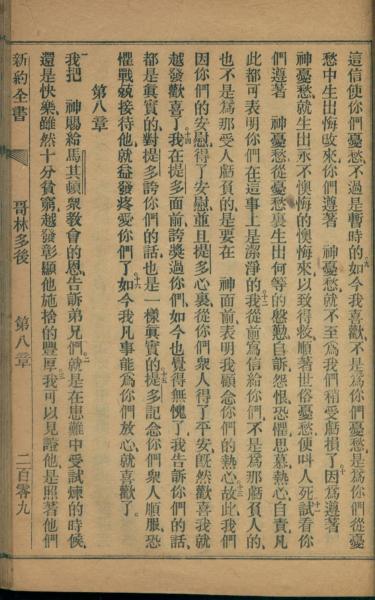 這信使你們憂愁、不過是暫時的、如今我喜歡、不是爲你們憂愁、是爲你們從憂
愁中生出悔改來、你們遵着　神憂愁、就不至爲我們稍受虧損了、因爲遵着
神憂愁、就生出永不懊悔的悔悔來、以致得救、順著世俗憂愁、便叫人死、試看你
們遵着　神憂愁、從憂愁裏生出何等的慇懃、自訴、怨恨、恐懼、思慕、熱心、自責、凡
此都可表明你們在這事上是潔淨的、我從前爲信給你們、不是爲那虧負人的、
也不是爲那受人虧負的、是要在　神面前表明我顧念你們的熱心、故此我們
因你們的安慰、得了安慰、並且提多心裏從你們衆人得了平安、旣然歡喜、我就
越發歡喜了、我在提多面前、誇獎過你們、如今也覺得無愧了、我告訴你們的話、
都是眞實的、對提多誇你們的話、也是一樣眞實的、提多記念你們衆人順服、恐
懼戰兢接待他、就益發疼愛你們了、如今我凡事能爲你們放心、就喜歡了。
第八章
我把　神賜給馬其頓衆敎會的恩、告訴弟兄們、就是在患難中受試煉的時候、
還是快樂、雖然十分貧窮、越發彰顯他施捨的豐厚、我可以見證、他是照著他們
新約全書
哥林多後
第八章
二百零九